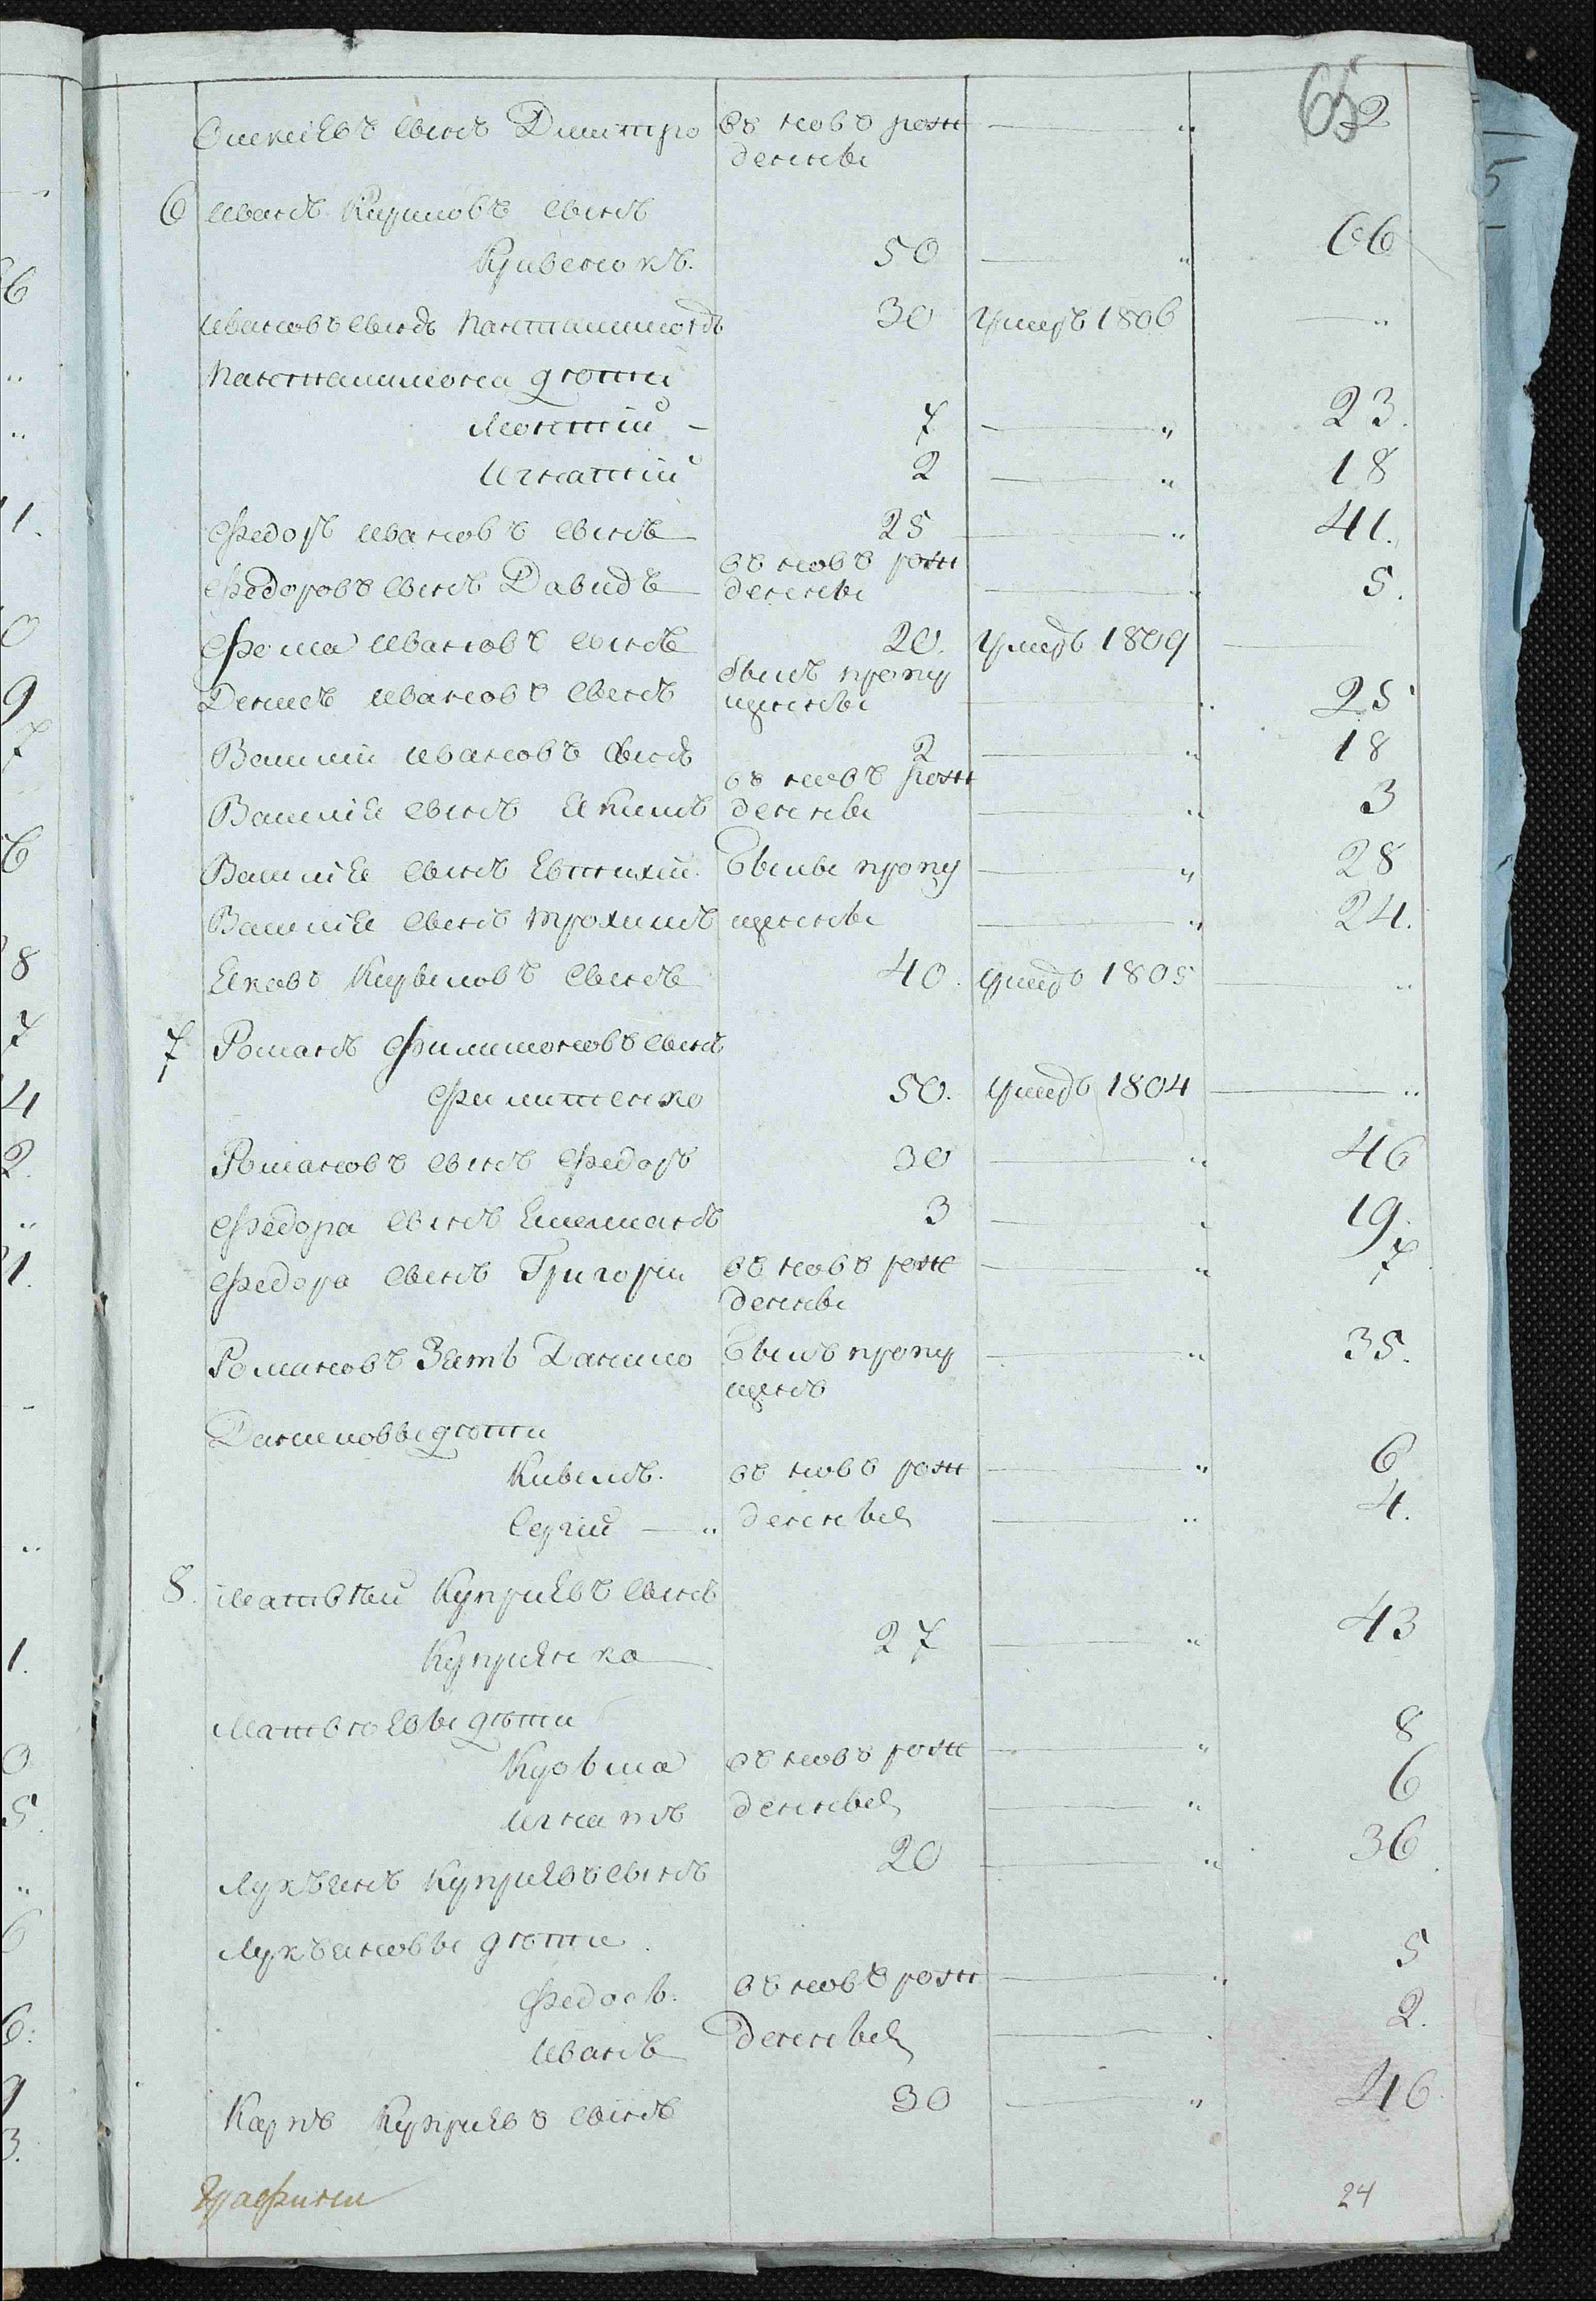 65
Алексѣевъ сынъ Дмитро въ новъ рож — „ 2
денны
6 Иванъ Кириловъ сынъ
Кривенокъ. 50 — „ 66
Ивановъ сынъ Пантелимонъ 30 умеръ 1806 — „
Пантелимона дѣти
Леонтий - 7 — „ 23.
Игнатий 2 — „ 18
Федоръ Ивановъ сынъ 25 — „ 41.
Федоровъ сынъ Давидъ въ новъ рож денны — „ 5.
Фома Ивановъ сынъ 20. умеръ 1809 —
Денисъ Ивановъ сынъ былъ пропу щенны — „ 25
Василий Ивановъ сынъ 2 — „ 18
Василіе сынъ Якимъ въ новъ рож денны — „ 3
Василіе сынъ Евтихий былы пропу — „ 28
Василіе сынъ Трохимъ щенны — „ 24.
Яковъ Кирыловъ сынъ 40. умеръ 1805 — „
7 Романъ Филимоновъ сынъ
Филипенко 50. умеръ 1804 — „
Романовъ сынъ Федоръ 30 — „ 46
Федора сынъ Емелианъ 3 — „ 19.
Федора сынъ Григорий въ новъ рож — „ 7
денны
Романовъ Зять Данило былъ пропу — „ 35.
щенъ
Даниловы дѣти
въ новъ рож — „ 6
Сергий — „ денные — „ 4.
8. Матвѣй Куприевъ сынъ
Куприенко 27 — „ 43
Матвѣевы дѣти
Кузьма въ новъ рож — „ 8
Игнатъ денные — „ 6
Лукъянъ Куприевъ сынъ 20 — „ 36
Лукъяновы дѣти
Федосъ. въ новъ рож — „ 5
Иванъ денные — „ 2.
Карпъ Куприевъ сынъ 30 — „ 46.
Графини
24